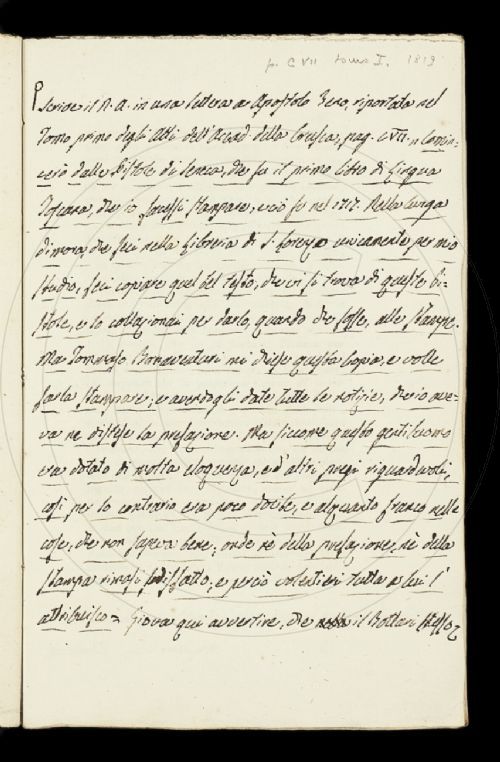 p. CVII tomo I. 1819
Scrive il P. A. in una lettera a Apostolo Zeno, riportata nel
Tomo primo degli Atti dell'Accad. della Crusca, pag. CVII. "Comin-
cerò dalle Pistole di Seneca, che fu il primo libro di Lingua
Toscana, che io facessi stampare, e ciò fu nel 1717. Nella lunga
dimora, che feci nella Libreria di S. Lorenzo unicamente per mio
studio, feci copiare quel bel testo, che vi si trova di queste Pi-
stole, e lo collazionai per darlo, quando che fosse, alle stampe.
Ma Tommaso Bonaventuri mi chiese questa copia, e volle
farla stampare; e avendogli date tutte le notizie, che io ave-
va ne distese la prefazione. Ma siccome questo gentiluomo
era dotato di molta eloquenza, e d'altri pregi riguardevoli,
così per lo contrario era, poco docile, e alquanto franco nelle
cose, che non sapeva bene; onde nè della prefazione, nè della
stampa rimasi soddisfatto; e perciò volentieri tutta a lui l'
attribuisco = Giova qui avvertire, che il Bottari stesso